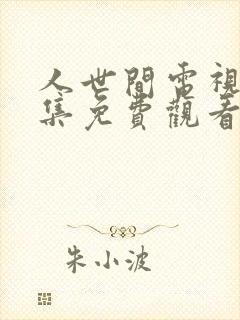 人世間電視
集免費觀看
朱小波